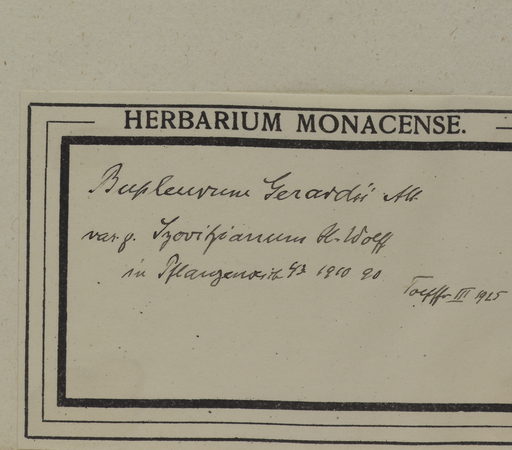 HERBARIUM MONACENSE.
Bupleurum Gerardii All.
var. γ. Szovitsianum H. Wolff
in Pflanzenreich 43 1910 90
III 1925